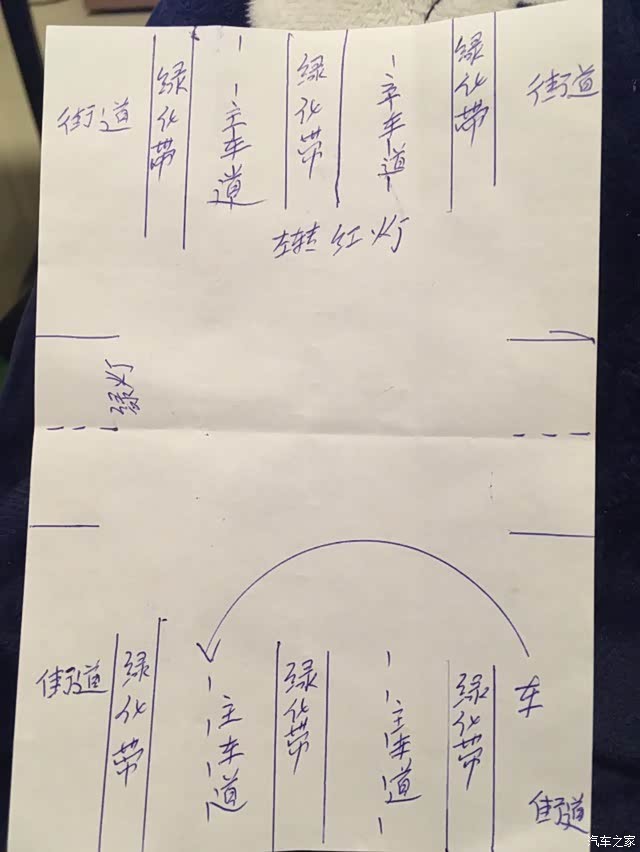 街道
绿化带
主车道
绿化带
主车道
绿化带
街道
左转红灯
绿灯
街道
绿化带
主车道
绿化带
主车道
绿化带
车
街道
汽车之家